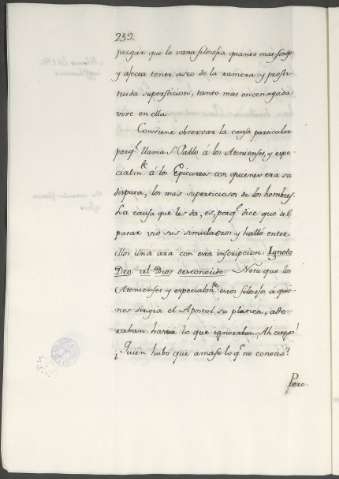 232
juzgar que la vana filosofia quanto mas finge
y afecta tener asco de la ramera y prosti-
tuida supersticion, tanto mas encenagada
vive en ella
Conviene observar la causa particular
porq.e llama S. Pablo á los Atenienses, y espe-
cialm.te á los Epicureos con quienes era su
disputa, los más supersticiosos de los hombres
La causa que les da, es, porq.e dice que al
pasar vio sus simulacros y hallo entre
ellos una ara con esta inscripcion Ignoto
Deo al Dios desconocido. Nota que los
Atenienses y especialm.te estos filosofos a quie-
nes dirigia el Apostol su platica, ado-
raban hasta lo que ignoraban. Ah ciegos!
¿Quien hubo que amase lo q.e no conocia?
Pero